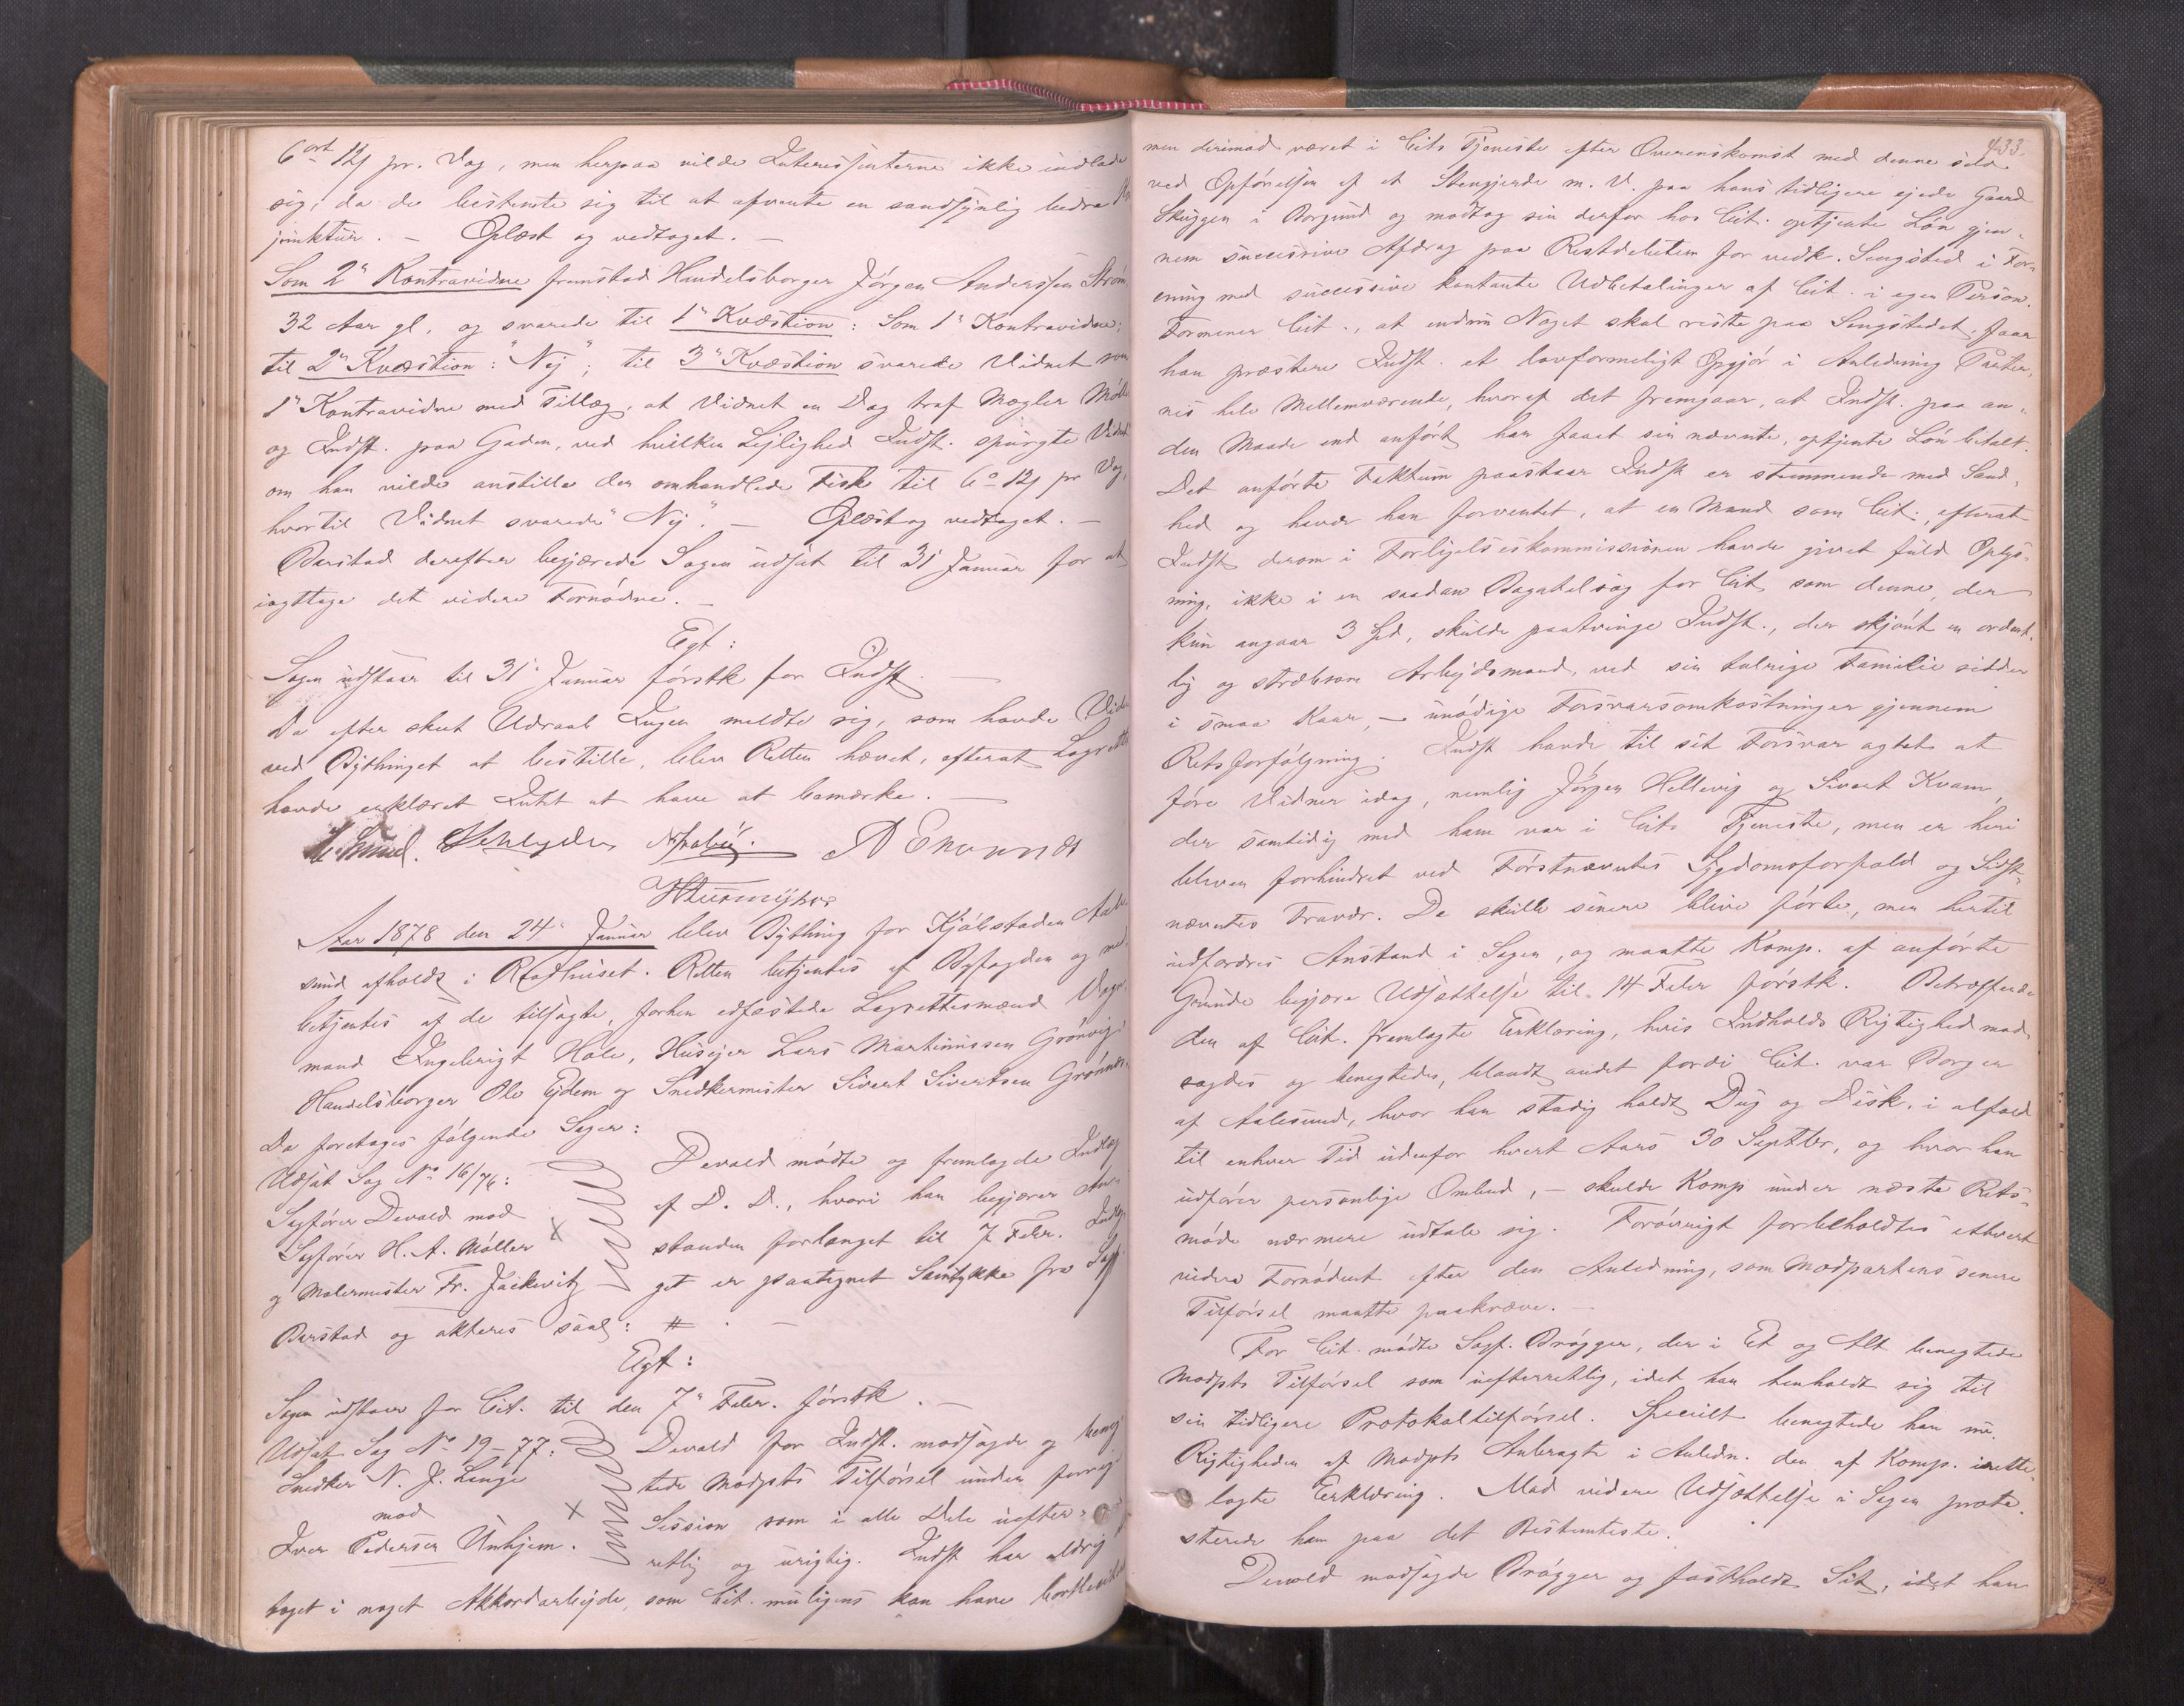 6 ort 12 s pr. Vog, men herpaa vilde Interessenterne ikke indlade
sig, da de bestemte sig til at afvente en sandsynlig bedre
junktur. – Oplæst og vedtaget. –
Som 2' Kontravidne fremstod Handelsborger Jørgen Anderssen Strøm,
32 Aar gl. og svarede til 1' Kvæstion: Som 1' Kontravidne;
til 2' Kvæstion: "Nej"; til 3' Kvæstion svarede Vidnet som
1' Kontravidne med Tillæg, at Vidnet en Dag traf Mægler
og Indst. paa Gaden, ved hvilken Lejlighed Indst. spurgte Vidnet
om han vilde anstille den omhandlede Fisk til 6 o 12 s pr Vog,
hvortil Vidnet svarede "Nej". – Oplæst og vedtaget. –
Barstad derefter begjærede Sagen udsat til 31 Januar for at
iagttage det videre Fornødne. –
Egt:
Sagen udstaar til 31' Januar førstk for Indst. –
Da efter skeet Udraab Ingen meldte sig, som havde
ved Bythinget at bestille, blev Retten hævet, efterat
havde erklæret Intet at have at bemærke. –
Aar 1878 den 24' Januar blev Bything for Kjøbstaden Aale-
sund afholdt i Raadhuset. Retten betjentes af Byfogden og med-
betjentes af de tilsagte, forhen edfæstede Lagrettesmænd Vogn-
mand Ingebrigt Hole, Husejer Lars Martinussen Grønvig,
Handelsborger Ole Ejdem og Snedkermester Sivert Sivertsen
Da foretoges følgende Sager:
Udsat Sag No 16/76:
Sagfører Devold mod
Sagfører H. A. Møller
og Malermester Fr. Jackwitz
Devold mødte og fremlagde Indlæg
af D. D., hvori han begjærer An-
standen forlænget til 7 Febr. Indlæg-
get er paategnet Samtykke fra Sagf.
Barstad og akteres saal: #
Egt:
Sagen udstaar for Cit. til den 7' Febr. førstk. –
Udsat Sag No 19–77:
Snedker N. J. Lange
mod
Iver Pedersen Unhjem.
Devold for Indst. modsagde og beneg-
tede Modpts Tilførsel under forrige
Session som i alle Dele uefter-
retlig og urigtig. Indst har aldrig
taget i noget Akkordarbejde, som Cit. muligens kan have
433.
men derimod været i Cits Tjeneste efter Overenskomst med denne
ved Opførelsen af et Stengjerde m. V. paa hans tidligere ejede Gaard
Skuggen i Borgund og modtog sin derfor hos Cit. optjente Løn gjen-
nem successive Afdrag paa Restdebetum for vedk. Sengsted i For-
ening med successive kontante Udbetalinger af Cit. i egen Person.
Formener Cit., at endnu Noget skal reste paa Sengstedet, faar
han præstere Indst. et lovformeligt Opgjør i Anledning Parter-
nes hele Mellemværende, hvoraf det fremgaar, at Indst. paa an-
den Maade end anført har faaet sin nævnte, optjente Løn betalt.
Det anførte Faktum paastaar Indst er stemmende med Sand-
hed og havde han forventet, at en Mand som Cit., efterat
Indst derom i Forligelseskommissionen havde givet fuld Oplys-
ning, ikke i en saadan Bagatelsag for Cit som denne, der
kun angaar 3 Spd, skulde paatvinge Indst., der skjønt en ordent-
lig og stræbsom Arbejdsmand, ved sin talrige Familie sidder
i smaa Kaar, – unødige Forsvarsomkostninger gjennem
Retsforfølgning. Indst havde til sit Forsvar agtet at
føre Vidner idag, nemlig Jørgen Hellevig og Sivert Kvam,
der samtidig med ham var i Cits Tjeneste, men er heri
bleven forhindret ved Førstnævntes Sygdomsforfald og Sidst-
nævntes Fravær. De skulle senere blive førte, men hertil
udfordres Anstand i Sagen, og maatte Komp. af anførte
Grunde begjære Udsættelse til 14 Febr førstk. Betræffende
den af Cit. fremlagte Erklæring, hvis Indholds Rigtighed mod-
sagdes og benegtedes, blandt andet fordi Cit. var Borger
af Aalesund, hvor han stadig holdt Dug og Disk, i alfald
til enhver Tid udenfor hvert Aars 30 Septbr, og hvor han
udfører personlige Ombud, – skulde Komp under næste Rets-
møde nærmere udtale sig. Forøvrigt forbeholdtes ethvert
videre Fornødent efter den Anledning, som Modpartens senere
Tilførsel maatte paakræve. –
For Cit. mødte Sagf. Brøgger, der i Et og Alt benegtede
Modpts Tilførsel som uefterretlig, idet han henholdt sig til
sin tidligere Protokoltilførsel. Specielt benegtede han nu
Rigtigheden af Modpts Anbragte i Anledn. den af Komp. irette-
lagte Erklæring. Mod videre Udsættelse i Sagen prote-
sterede han paa det Bestemteste.
Devold modsagde Brøgger og fastholdt Sit, idet han